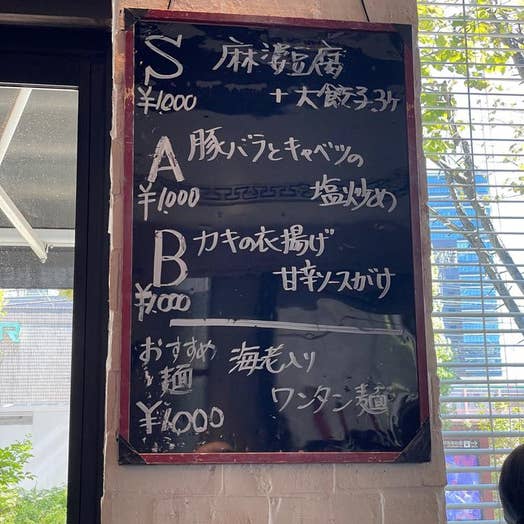 S 麻婆豆腐
¥1,000 +大餃子3ヶ
A 豚バラとキャベツの
¥1,000 塩炒め
B カキの衣揚げ
¥1,000 甘辛ソースがけ
おすすめ 海老入り
麺 ワンタン麺
¥1,000